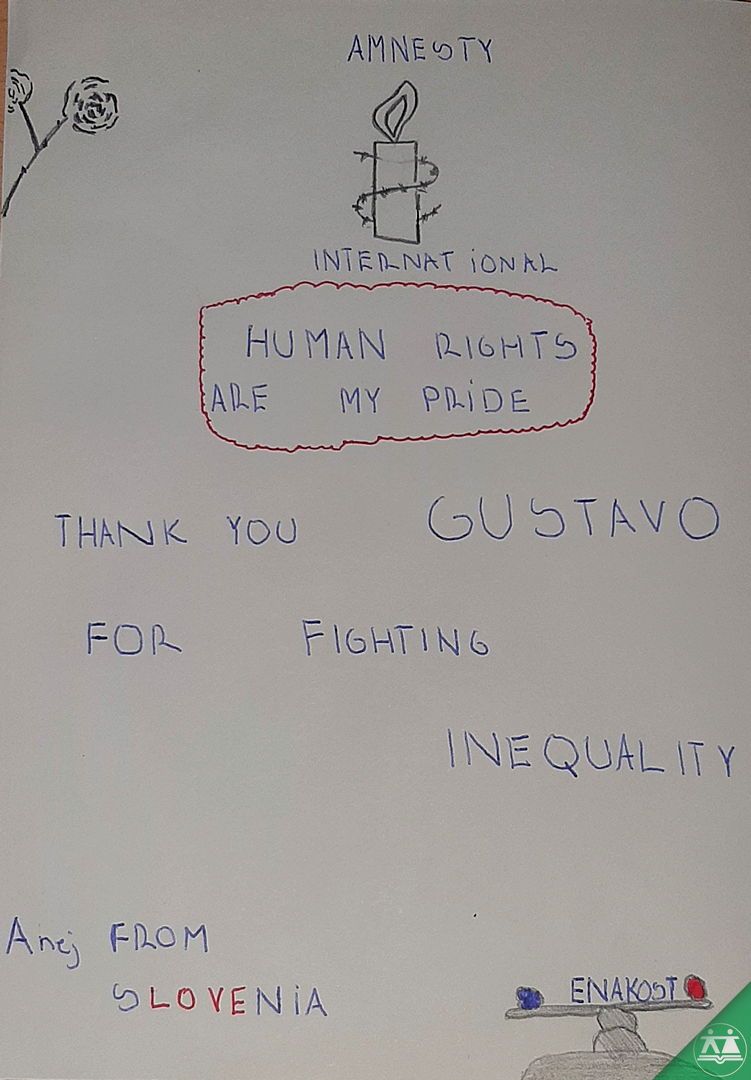 AMNESTY
INTERNATiONAL
HUMAN RIGHTS
ARE MY PRiDE
THANK YOU GUSTAVO
FOR FIGHTING
INEQUALITY
Anej FROM
SLOVENiA
ENAKOST